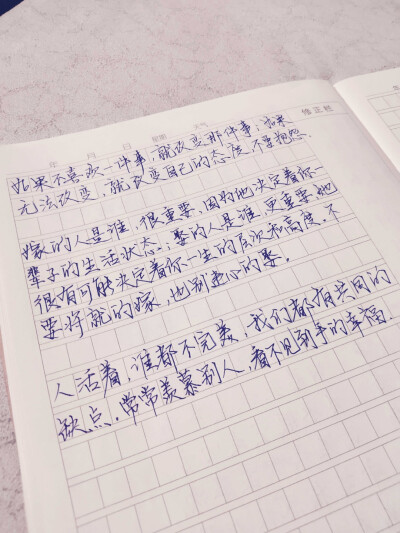 年 月 日 星期 天气
如果不喜欢一件事，就改变那件事；如果
无法改变，就改变自己的态度，不要抱怨.
嫁的人是谁，很重要，因为他决定着你一
辈子的生活状态。娶的人是谁，更重要，她
很有可能决定着你一生的层次和高度，不
要将就的嫁，也别违心的娶。
人活着，谁都不完美，我们都有共同的
缺点，常常羡慕别人，看不见到手的幸福.